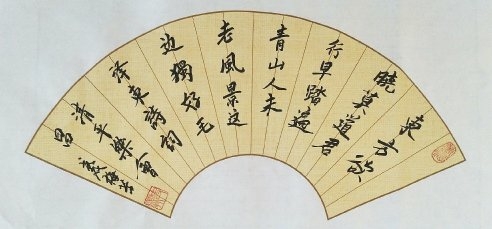 東方欲
曉莫道君
行早踏遍
青山人未
老風景这
边獨好毛
泽東詩詞
清平樂會
昌